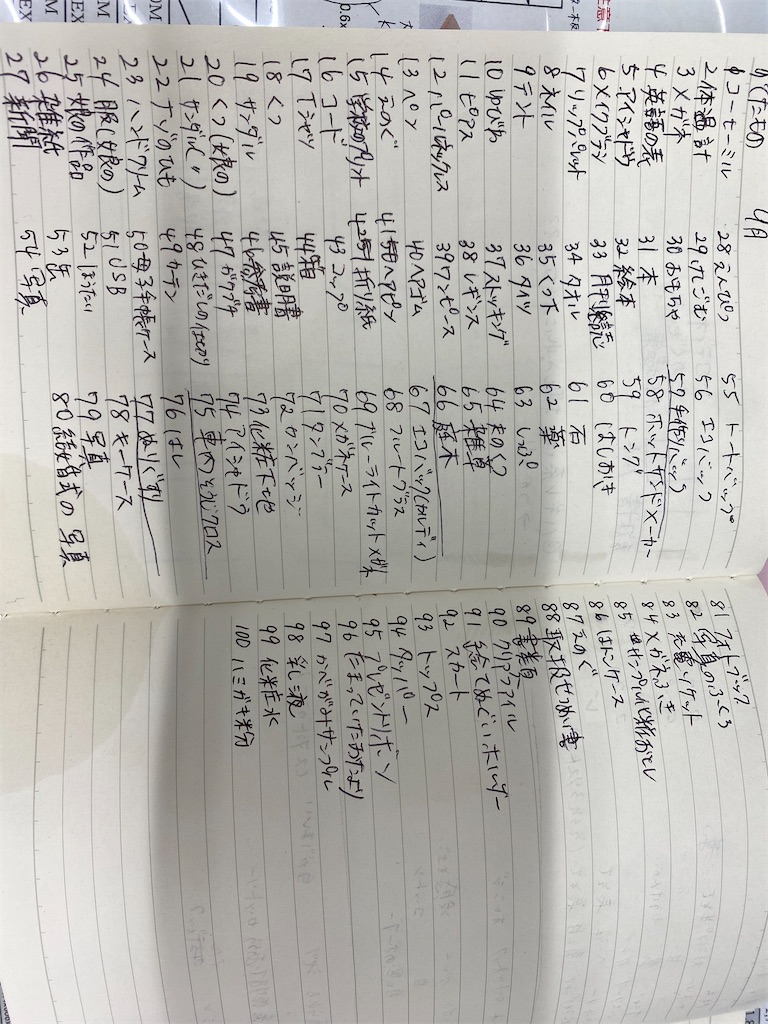 4月
1 コーヒーミル
2 体温計
3 メガネ
4 英語の本
5 アイシャドウ
6 メイクブラシ
7 リップパレット
8 ネイル
9 テント
10 ゆびわ
11 ピアス
12 パールネックレス
13 ペン
14 えのぐ
15 学校のプリント
16 コード
17 Tシャツ
18 くつ
19 サンダル
20 くつ(娘の)
21 サンダル(〃)
22 ナゾのひも
23 ハンドクリーム
24 服(娘の)
25 娘の作品
26 雑紙
27 新聞
28 えんぴつ
29 けしごむ
30 おもちゃ
31 本
32 絵本
33 月刊絵読
34 タオル
35 くつ下
36 タイツ
37 ストッキング
38 レギンス
39 ワンピース
40 ヘアゴム
41 ヘアピン
42 折り紙
43 コップ
44 箱
45 説明書
46 参考書
47
48 ひきだしの
49 カーテン
50 母子手帳ケース
51 USB
52 ほうたい
53 缶
54 写真
55 トートバッグ
56 エコバック
57 手作りバック
58 ホットサンドメーカー
59 トング
60 はしおき
61 石
62 薬
63 しっぷ
64 きのくつ
65 雑草
66 庭木
67 エコバック(カルディ)
68 フルートグラス
69 ブルーライトカットメガネ
70 メガネケース
71 タンブラー
72 カンバッジ
73 化粧下地
74 アイシャドウ
75 車内そうじクロス
76 はし
77 ぬいぐるみ
78 キーケース
79 写真
80 結婚式の写真
81 フォトブック
82 写真のふくろ
83 充電ソケット
84 メガネふき
85 サンプル化粧おとし
86 はしケース
87 えのぐ
88 取扱せつめい書
89 書類
90 クリアファイル
91 手ぬぐいホルダー
92 スカート
93 トップス
94 タッパー
95 プレゼントリボン
96 たまっていた(おたより)
97 かべがみサンプル
98 乳液
99 化粧水
100 ハミガキ粉